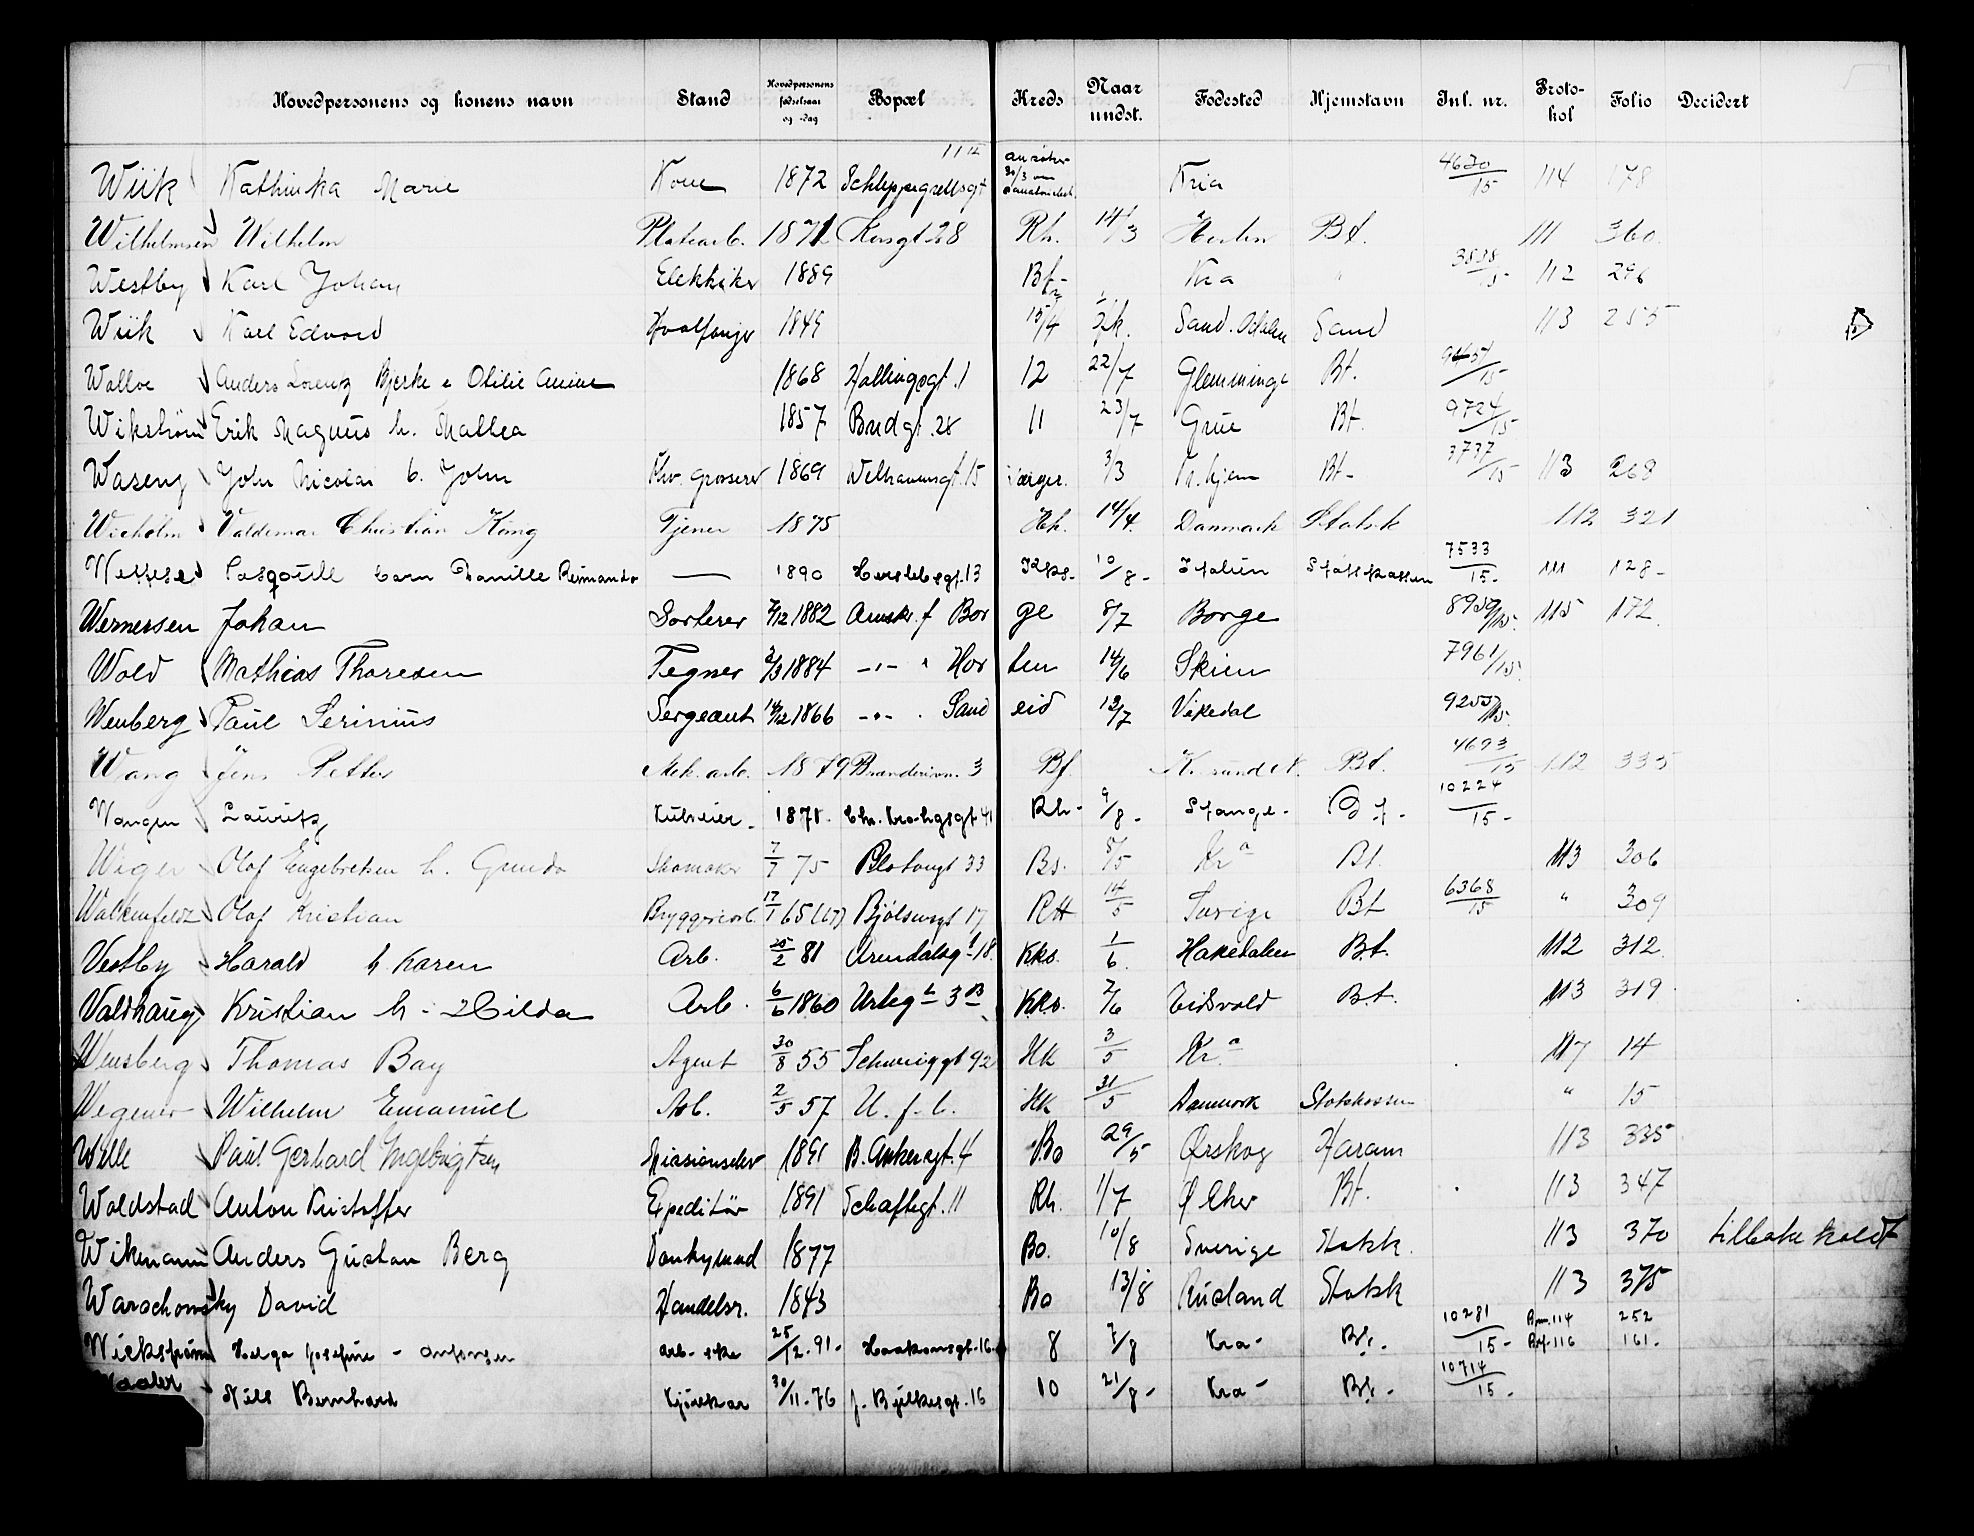 Hovedpersonens og konens navn Stand Hovedpersonens fødselsaar og -dag Bopæl Kreds Naar undst. Fødested Hjemstavn Inl. nr. Protokol Folio Decidert
Wiik Kathinka Marie Kone 1872 Schleppegrellsgt Kria 4620/15 114 178
Wilhelmsen Wilhelm Platearb. 1871 28 Rh. 14/3 Bt. 111 360.
Westby Karl Johan Elektriker 1889 Bf- Kra " 3838/15 112 296
Wiik Karl Edvard Hvalfanger 1849 15/4 Sand. Odalen Sand 113 255
Walloe Anders Lorentz Bjerke e Otilie Amine 1868 Hallingsgt. 1 12 22/7 Glemminge Bt. 9457/15
Wikstrøm Erik Magnus h. Mallea 1857 Brudgt. 28 11 23/7 Grue Bt. 9724/15
Waseng John Nicolai b. John fhv. Grosserer 1869 Welhavensgt. 15 3/3 Tr.hjem Bt- 3737/15 113 268
Wicholm Valdemar Christian König Tjener 1875 Hk. 14/4. Danmark Statsk 112 321
barn Danille Reimando — 1890 Herslebsgt. 13 Kks- 10/8- Italien Statskassen 7533/15- 111 128-
Wernersen Johan Sorterer 7/12 1882 Amsk. f Bor ge 8/7 Borge 8959/15. 115 172.
Wold Mathias Thoresen Tegner 2/3 1884 -"- " Hor ten 14/6 Skien 7961/15.
Wenberg Paul Serinius Sergeant 14/12 1866 -"- . Sand eid 12/7 Vikedal 9255/15.
Wang Jens Petter Mek. arb. 1879 3 Bf. K. sund N. Bt. 4693/15 112 335
Wangen Lauritz Kulreier- 1871. Chr. Kroghsgt 41 Rh- 9/8- Stange- Bf- 10224/15-
Weger Olof Engebretsen h. Gunda Skomaker 7/7 75 33 Bs. 5/5 Kr a Bt. 113 306
Walkenfeldz Olof Kristian Bryggeriarb. 17/1 65 (67) Bjølsensgt 17 RH 14/5 Sverige Bt 6368/15 " 309
Vestby Harald h. Karen Arb. 25/2 81 Arendalsgt 18. Kks. 1/6. Hakedalen B.t. 112 312
Valdhaug Kristian h - Hilda Arb. 6/6 1860 Urteg t 3 B Kks. 2/6 Eidsvold B.t. 113 319
Wensberg Thomas Bay Agent 30/8 55 Schweiggt 92 HK 3/5 Kr. a 117 14
Wegener Wilhelm Emanuel Arb. 2/5 57 U. f. b. HK 31/5 Danmark Statskassen " 15
Wille Paul Gerhard Ingebrigtsen Missionselev 1891 B. Ankersgt. 4 Bo 29/5 Ørskog Haram 113 335
Woldstad Anton Kristoffer Expeditør 1891 Schaftegt. 11 Rh. 1/7 Ø Aker Bt. 113 347
Wikmann Anders Gustav Berg 1877 Bo. 10/8 Sverige Statsk. 113 370 tilbakekaldt
Warschowsky David Handelsr. 1843 Bo 13/8 Rusland Statsk 113 375
Wickstrøm Helga Josefine - Arb- ske 25/12-91- Haakonsgt-16- 8 7/8 Kra- Bf- 10281/15- Bpm. 114 252
Bf-116 161-
Nils Bernhard Kjørekar 30/11-76 16 10 21/8- Kra- Bf- 10714/15-